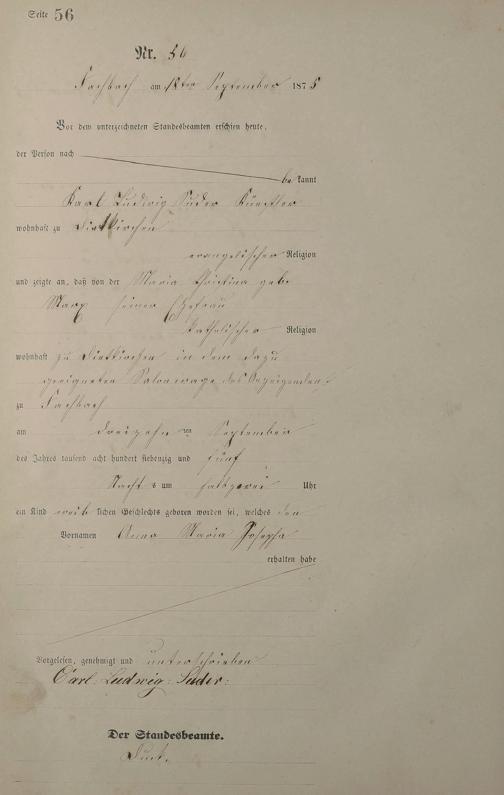 Seite 56
Nr. 56
Fachbach am 18ten September 1875
Vor dem unterzeichneten Standesbeamten erschien heute,
der Person nach
bekannt
Karl Ludwig Suder Künstler
wohnhaft zu Dietkirchen
evangelischer Religion
und zeigte an, daß von der Maria Christina geb.
Marx seiner Ehefrau
katholischer Religion
wohnhaft zu Dietkirchen in dem dazu
geeigneten Salonwage des Anzeigenden
zu Fachbach
am dreizehnten September
des Jahres tausend acht hundert siebenzig und fünf
Nachts um halbzwei Uhr
ein Kind weiblichen Geschlechts geboren worden sei, welches den
Vornamen Anna Maria Josepha
erhalten habe
Vorgelesen, genehmigt und unterschrieben
Carl Ludwig Suder
Der Standesbeamte.